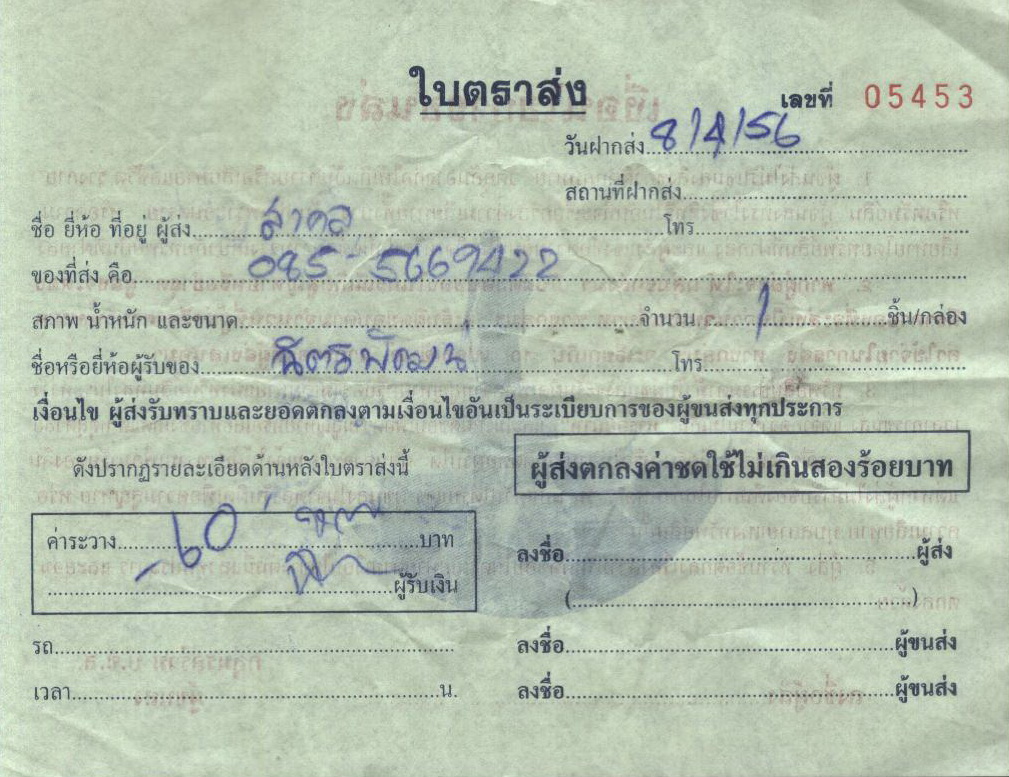 ใบตราส่ง
เลขที่ 05453
วันฝากส่ง 8/4/56
สถานที่ฝากส่ง
ชื่อ ยี่ห้อ ที่อยู่ ผู้ส่ง สาคล โทร
ของที่ส่ง คือ 085-5669422
สภาพ น้ำหนัก และขนาด จำนวน 1 ชิ้น/กล่อง
ชื่อหรือยี่ห้อผู้รับของ ฉัตรพัฒน์ โทร
เงื่อนไข ผู้ส่งรับทราบและยอดตกลงตามเงื่อนไขอันเป็นระเบียบการของผู้ขนส่งทุกประการ
ดังปรากฏรายละเอียดด้านหลังใบตราส่งนี้
ผู้ส่งตกลงค่าชดใช้ไม่เกินสองร้อยบาท
ค่าระวาง 60 บาท
ผู้รับเงิน
ลงชื่อ ผู้ส่ง
( )
รถ
ลงชื่อ ผู้ขนส่ง
เวลา น.
ลงชื่อ ผู้ขนส่ง